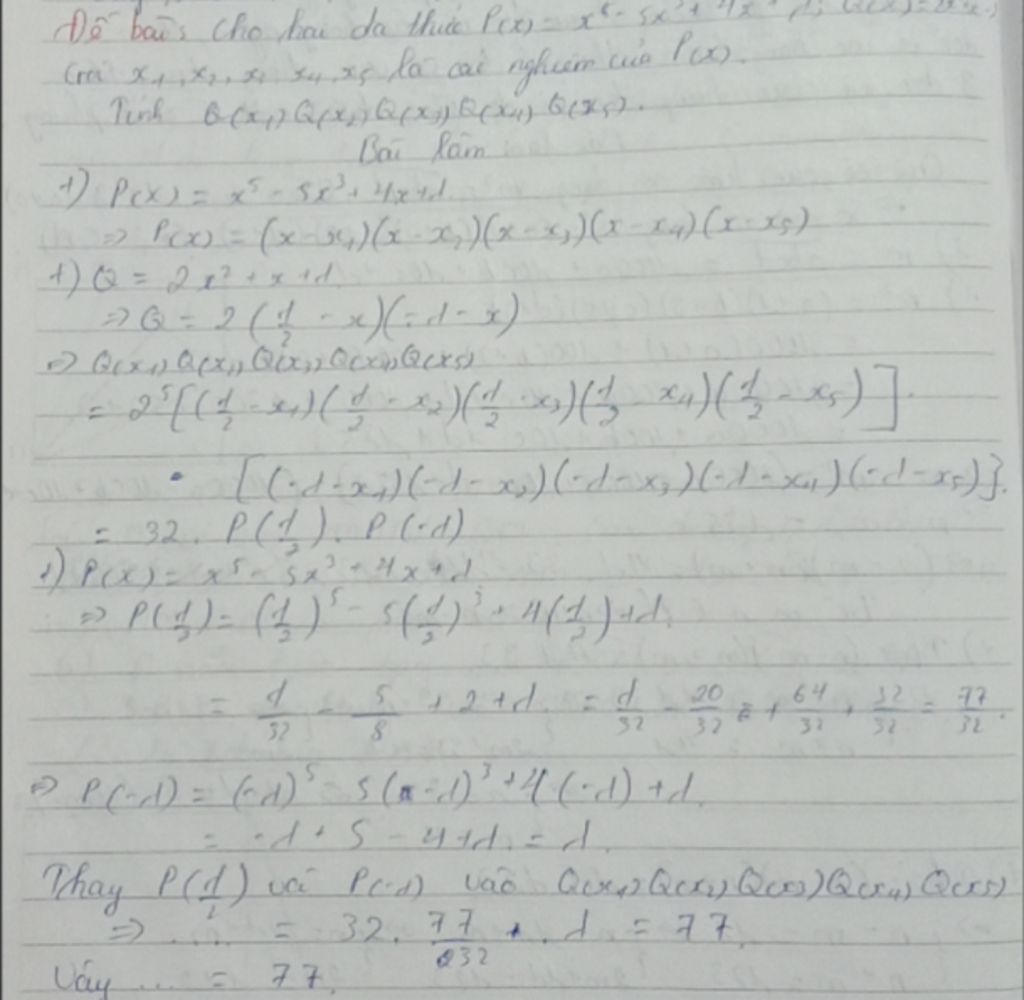 Đề bài: Cho hai đa thức P(x) = x⁵ - 5x³ + 4x + 1; Q(x) = 2x²
Gọi x₁, x₂, x₃, x₄, x₅ là các nghiệm của P(x).
Tính Q(x₁) Q(x₂) Q(x₃) Q(x₄) Q(x₅).
Bài làm
+) P(x) = x⁵ - 5x³ + 4x + 1
=> P(x) = (x - x₁)(x - x₂)(x - x₃)(x - x₄)(x - x₅)
+) Q = 2x² + x + 1
=> Q = 2(1/2 - x)(-1 - x)
=> Q(x₁) Q(x₂) Q(x₃) Q(x₄) Q(x₅)
= 2⁵[(1/2 - x₁)(1/2 - x₂)(1/2 - x₃)(1/2 - x₄)(1/2 - x₅)].
. [(-1 - x₁)(-1 - x₂)(-1 - x₃)(-1 - x₄)(-1 - x₅)].
= 32. P(1/2). P(-1)
+) P(x) = x⁵ - 5x³ + 4x + 1
=> P(1/2) = (1/2)⁵ - 5(1/2)³ + 4(1/2) + 1.
= 1/32 - 5/8 + 2 + 1. = 1/32 - 20/32 + 64/32 + 32/32 = 77/32.
=> P(-1) = (-1)⁵ - 5(-1)³ + 4(-1) + 1.
= -1 + 5 - 4 + 1. = 1.
Thay P(1/2) và P(-1) vào Q(x₁) Q(x₂) Q(x₃) Q(x₄) Q(x₅)
=> ..... = 32. 77/32 . 1 = 77.
Vậy ... = 77.